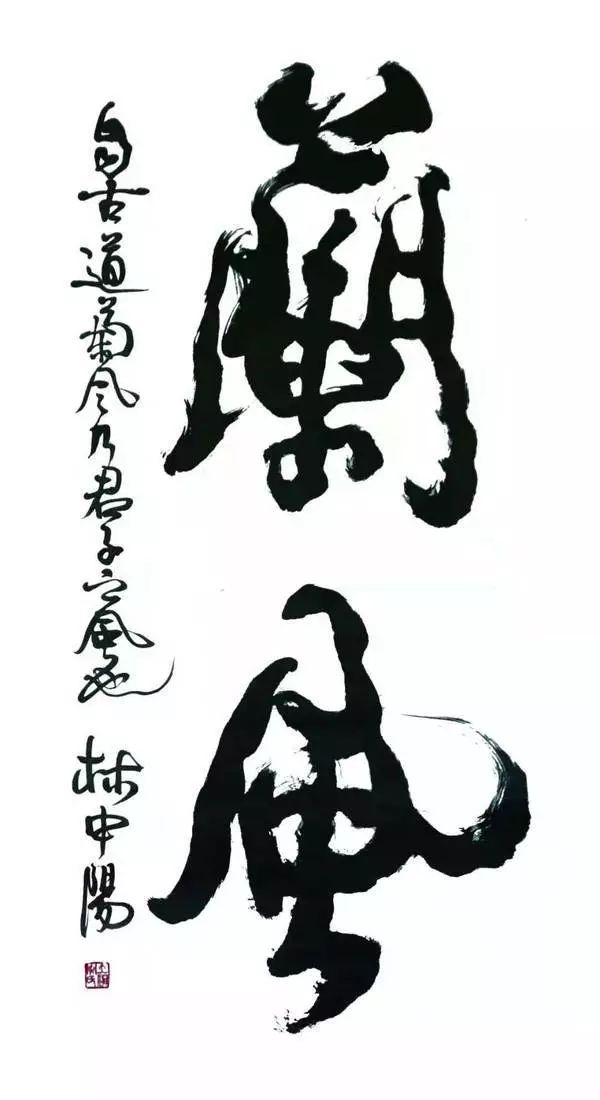 蘭風
自古道蘭风乃君子之風也 林中陽